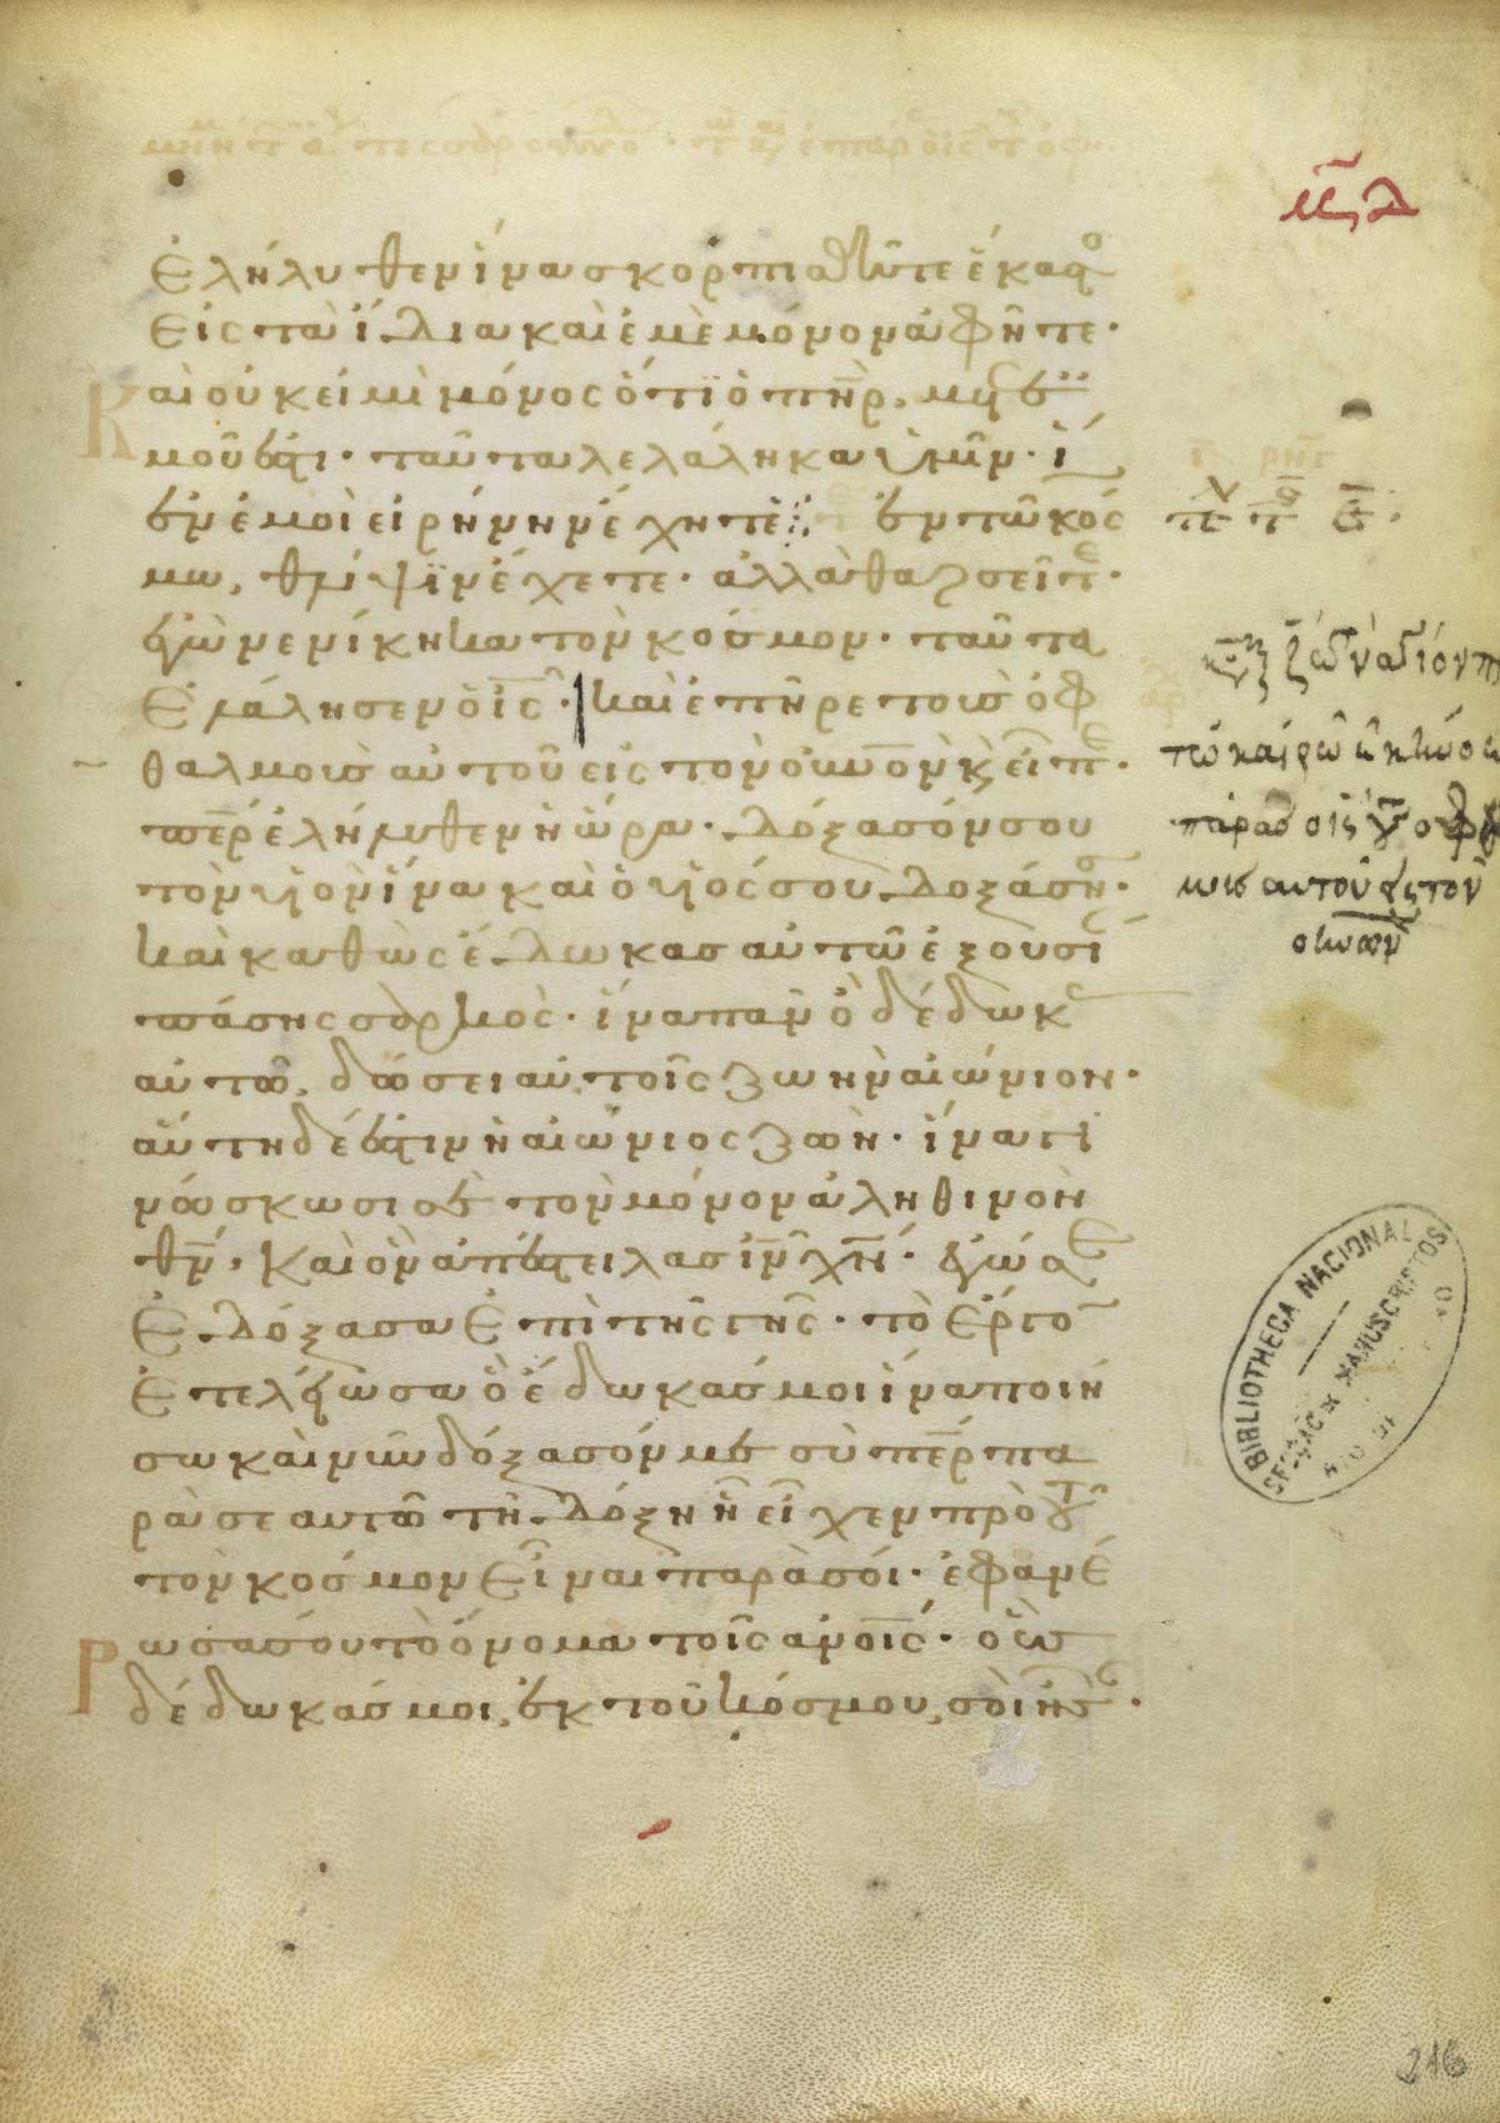 ἐλήλυθεν ἵνα σκορπισθῆτε ἕκαστο
εἰς τὰ ἴδια καὶ ἐμὲ μόνον ἀφῆτε·
Κ αὶ οὐκ εἰμὶ μόνος ὅτι ὁ πηρ μετ ἐ
μοῦ ἐστι· ταῦτα λελάληκα ὑμῖν· ἵ
ἐν ἐμοὶ εἰρήνην ἔχητε ἐν τῶ κόσ
μω, θλίψιν ἔχετε· ἀλλὰ θαρσεῖτε·
ἐγὼ νενίκηκα τὸν κόσμον· ταῦτα
ἐλάλησεν ὁ ις· καὶ ἐπῆρε τοὺς ὀφ
θαλμοὺς αὐτοῦ εἰς τὸν οὐνον κ εἶπε·
περ ἐλήλυθεν ἡ ὥρα· δόξασόν σου
τὸν υἱὸν ἵνα καὶ ὁ υἱός σου δοξάση·
καὶ καθὼς ἔδωκας αὐτῶ ἐξουσί
πάσης σαρκὸς· ἵνα πᾶν ὃ δέδωκ
αὐτῶ, δώσει αὐτοῖς ζωὴν αἰώνιον·
αὕτη δέ ἐστιν ἡ αἰώνιος ζωή· ἵνα γι
νώσκωσι σὲ τὸν μόνον ἀληθινὸν
θν· καὶ ὃν ἀπέστειλας ιν χν· ἐγώ σε
ἐδόξασα ἐπὶ τῆς γῆς· τὸ ἔργο
ἐτελείωσα ὃ ἔδωκάς μοι ἵνα ποιή
σω καὶ νῦν δόξασόν με σὺ περ πα
ρὰ σεαυτῶ τῆ δόξη ἧ εἶχον πρὸ τοῦ
τὸν κόσμον εἶναι παρὰ σοί· ἐφανέ
Ρ ωσά σου τὸ ὄνομα τοῖς ανοις· οὓς
δέδωκάς μοι ἐκ τοῦ κόσμου, σοὶ ἦσ·
τῶ καιρῶ
πάρας ὁ ις τοὺς ὀφθ
μοὺς αὐτοῦ εἰς τὸν
BIBLIOTHECA NACIONAL
SECÇÃO DE MANUSCRIPTOS
216